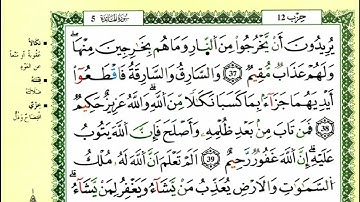 حزب 12
سورة المائدة 5
يُرِيدُونَ أَنْ يَخْرُجُوا مِنَ النَّارِ وَمَا هُمْ بِخَارِجِينَ مِنْهَا
وَلَهُمْ عَذَابٌ مُقِيمٌ 37 وَالسَّارِقُ وَالسَّارِقَةُ فَاقْطَعُوا
أَيْدِيَهُمَا جَزَاءً بِمَا كَسَبَا نَكَالًا مِنَ اللَّهِ وَاللَّهُ عَزِيزٌ حَكِيمٌ 38
فَمَنْ تَابَ مِنْ بَعْدِ ظُلْمِهِ وَأَصْلَحَ فَإِنَّ اللَّهَ يَتُوبُ
عَلَيْهِ إِنَّ اللَّهَ غَفُورٌ رَحِيمٌ 39 أَلَمْ تَعْلَمْ أَنَّ اللَّهَ لَهُ مُلْكُ
السَّمَاوَاتِ وَالْأَرْضِ يُعَذِّبُ مَنْ يَشَاءُ وَيَغْفِرُ لِمَنْ يَشَاءُ
نكالا
عقوبة أو منعا
عن العود